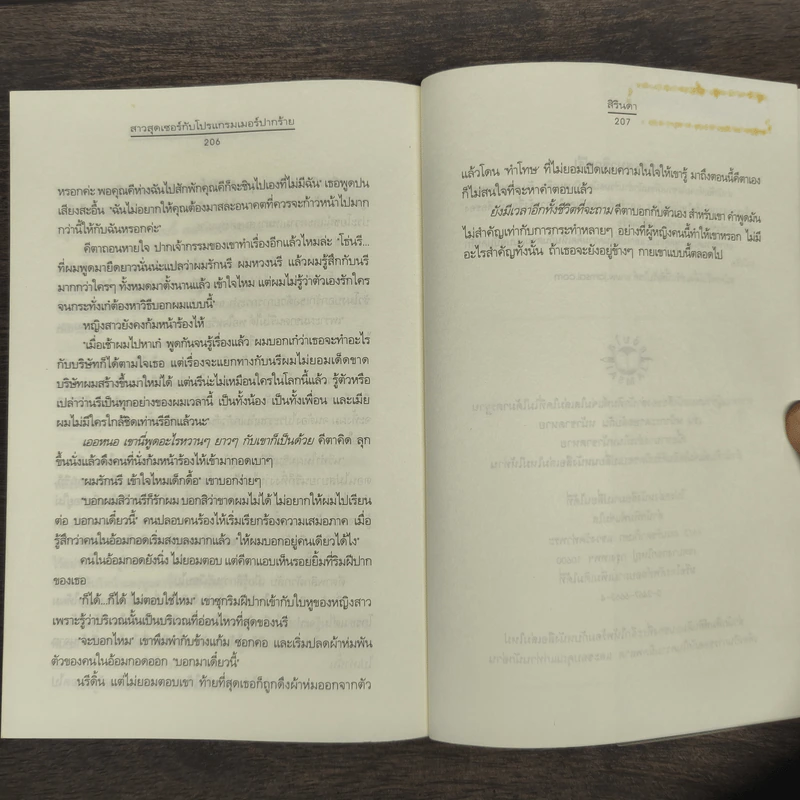 สาวสุดเซอร์กับโปรแกรมเมอร์ปากร้าย
206
หรอกค่ะ พอคุณคีห่างฉันไปสักพักคุณคีก็จะชินไปเองที่ไม่มีฉัน" เธอพูดปน
เสียงสะอื้น "ฉันไม่อยากให้คุณต้องมาสละอนาคตที่ควรจะก้าวหน้าไปมาก
กว่านี้ให้กับฉันหรอกค่ะ"
คีตาถอนหายใจ ปากเจ้ากรรมของเขาทำเรื่องอีกแล้วไหมล่ะ "โธ่นรี...
ที่ผมพูดมายืดยาวนั่นน่ะแปลว่าผมรักนรี ผมหวงนรี แล้วผมรู้สึกกับนรี
มากกว่าใครๆ ทั้งหมดมาตั้งนานแล้ว เข้าใจไหม แต่ผมไม่รู้ว่าตัวเองรักใคร
จนกระทั่งเก๋ต้องหาวิธีบอกผมแบบนี้"
หญิงสาวยังคงก้มหน้าร้องไห้
"เมื่อเช้าผมไปหาเก๋ พูดกันจนรู้เรื่องแล้ว ผมบอกเก๋ว่าเธอจะทำอะไร
กับบริษัทก็ได้ตามใจเธอ แต่เรื่องจะแยกทางกับนรีผมไม่ยอมเด็ดขาด
บริษัทผมสร้างขึ้นมาใหม่ได้ แต่นรีน่ะไม่เหมือนใครในโลกนี้แล้ว รู้ตัวหรือ
เปล่าว่านรีเป็นทุกอย่างของผมเวลานี้ เป็นทั้งน้อง เป็นทั้งเพื่อน และเมีย
ผมไม่มีใครใกล้ชิดเท่านรีอีกแล้วนะ"
เออหนอ เขานี่พูดอะไรหวานๆ ยาวๆ กับเขาก็เป็นด้วย คีตาคิด ลุก
ขึ้นนั่งแล้วดึงคนที่นั่งก้มหน้าร้องไห้เข้ามากอดเบาๆ
"ผมรักนรี เข้าใจไหมเด็กดื้อ" เขาบอกง่ายๆ
"บอกผมสิว่านรีก็รักผม บอกสิว่าขาดผมไม่ได้ ไม่อยากให้ผมไปเรียน
ต่อ บอกมาเดี๋ยวนี้" คนปลอบคนร้องไห้เริ่มเรียกร้องความเสมอภาค เมื่อ
รู้สึกว่าคนในอ้อมกอดเริ่มสงบลงมากแล้ว "ให้ผมบอกอยู่คนเดียวได้ไง"
คนในอ้อมกอดยังนิ่ง ไม่ยอมตอบ แต่คีตาแอบเห็นรอยยิ้มที่ริมฝีปาก
ของเธอ
"ก็ได้...ก็ได้ ไม่ตอบใช่ไหม" เขาซุกริมฝีปากเข้ากับใบหูของหญิงสาว
เพราะรู้ว่าบริเวณนั้นเป็นบริเวณที่อ่อนไหวที่สุดของนรี
"จะบอกไหม" เขาพึมพำกับข้างแก้ม ซอกคอ และเริ่มปลดผ้าห่มพัน
ตัวของคนในอ้อมกอดออก "บอกมาเดี๋ยวนี้"
นรีดิ้น แต่ไม่ยอมตอบเขา ท้ายที่สุดเธอก็ถูกดึงผ้าห่มออกจากตัว
สิรินดา
207
แล้วโดน 'ทำโทษ' ที่ไม่ยอมเปิดเผยความในใจให้เขารู้ มาถึงตอนนี้คีตาเอง
ก็ไม่สนใจที่จะหาคำตอบแล้ว
ยังมีเวลาอีกทั้งชีวิตที่จะถาม คีตาบอกกับตัวเอง สำหรับเขา คำพูดมัน
ไม่สำคัญเท่ากับการกระทำหลายๆ อย่างที่ผู้หญิงคนนี้ทำให้เขาหรอก ไม่มี
อะไรสำคัญทั้งนั้น ถ้าเธอจะยังอยู่ข้างๆ กายเขาแบบนี้ตลอดไป